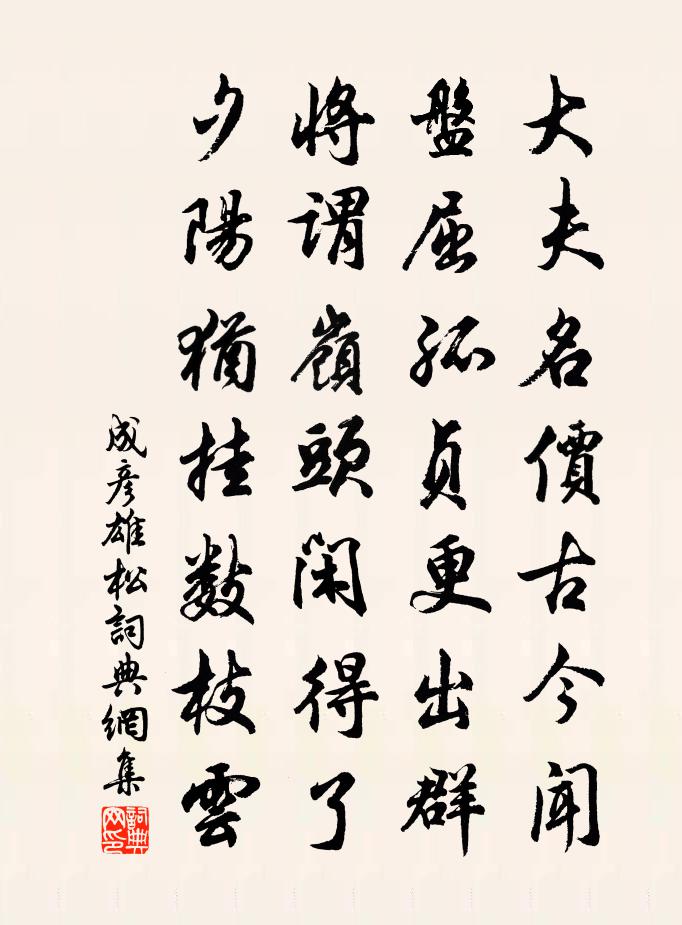 大夫名價古今聞
盤屈孤貞更出群
將謂嶺頭閑得了
夕陽猶挂數枝雲
成彥雄松詞典網集
詞典網印